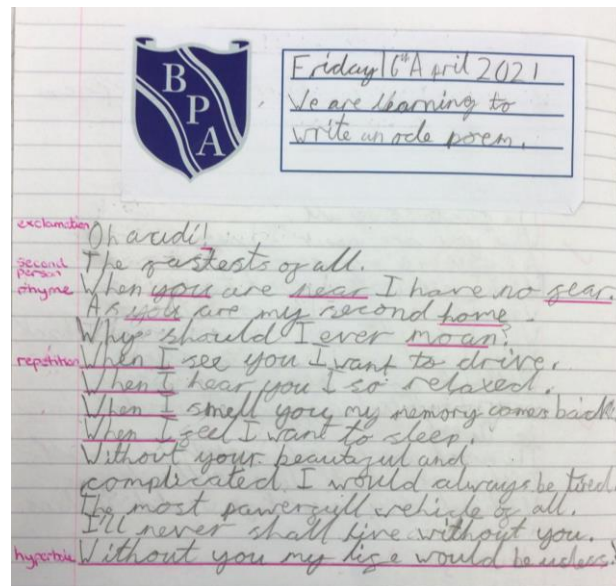 BPA
Friday 16th April 2021
We are learning to
write an ode poem.
exclamation Oh audi!
second person The fastests of all.
rhyme When you are near I have no fear
As you are my second home.
Why should I ever moan?
repetition When I see you I want to drive.
When I hear you I so relaxed.
When I smell you my memory comes back
When I feel I want to sleep.
Without your beautiful and
complicated I would always be tired.
The most powerfull vehicle of all.
I'll never shall live without you.
hyperbole Without you my life would be useless